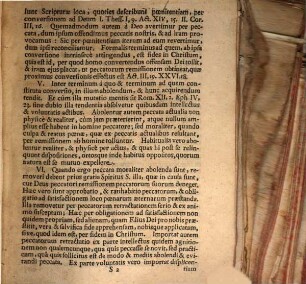 sunt Scripturæ loca, quoties describitur pœnitentiam, per
conversionem ad Deum I. Thess. I, 9. Act. XIV, 15. II. Cor.
III, 16. Quemadmodum autem à Deo avertimur per pec-
cata, dum ipsum offendimus peccatis nostris, & ad iram pro-
vocamus: Sic per pœnitentiam iterum ad eum revertimur,
dum ipsi reconciliamur. Formalis terminus ad quem, ab ipsa
conversione intrinsecè attingendus, est fides in Christum,
quia est id, per quod homo convertendus offensam Dei tollit,
& iram ejus placat, ut peccatorum remissionem obtineat, quæ
proximus conversionis effectus est Act. III, 19. XXVI, 18.
V. Inter terminum à quo & terminum ad quem con-
stituta conversio, in illum abolendum, & hunc acquirendum
tendit. Et cum illa mutatio mentis sit Rom. XII. Eph. IV,
23. sine dubio illa tendentia absolvetur quibusdam intellectus
& voluntatis actibus. Abolentur autem peccata actualia non
physicè & realiter, cùm jam præterierint, atque nullum am-
plius esse habeant in homine peccatore; sed moraliter, quando
culpa & reatus pœnæ, quæ ex peccatis actualibus resultant,
per remissionem ab homine tolluntur. Habitualia verò
abolentur realiter, & physicè per actus, & quia hi post se relin-
quunt dispositiones, ortosque inde habitus oppositos, quorum
autorem tamen sit ex mutuo expellere.
VI. Quando ergo peccata moraliter abolenda sunt, re-
moveri debent prius gratia Spiritus S. illa, quæ in causa sunt,
cur Deus peccatori remissionem peccatorum suorum deneget.
Hæc verò sunt approbatio, & ratihabitio peccatorum, & obli-
catio ad satisfactionem loco pœnarum æternarum præstandam.
Illa removetur per peccatorum retractationem seriò & ex ani-
mo susceptam; Hæc per obligationem ad satisfactionem non
quidem propriam, sed alienam, quam Filius Dei pro nobis præ-
stitit, vera & salvifica fide apprehensum, nobisque applicatam,
sive, quod idem est, per fidem in Christum. Importat autem
peccatorum retractatio ex parte intellectus quidem agnitio-
nem non qualemcunque, quæ quis peccasse se novit, sed practi-
cam, quâ quis sollicitus est de modo & mediis abolendi & evi-
tandi peccata. Ex parte voluntatis verò importat displicen-
S 2 tiam